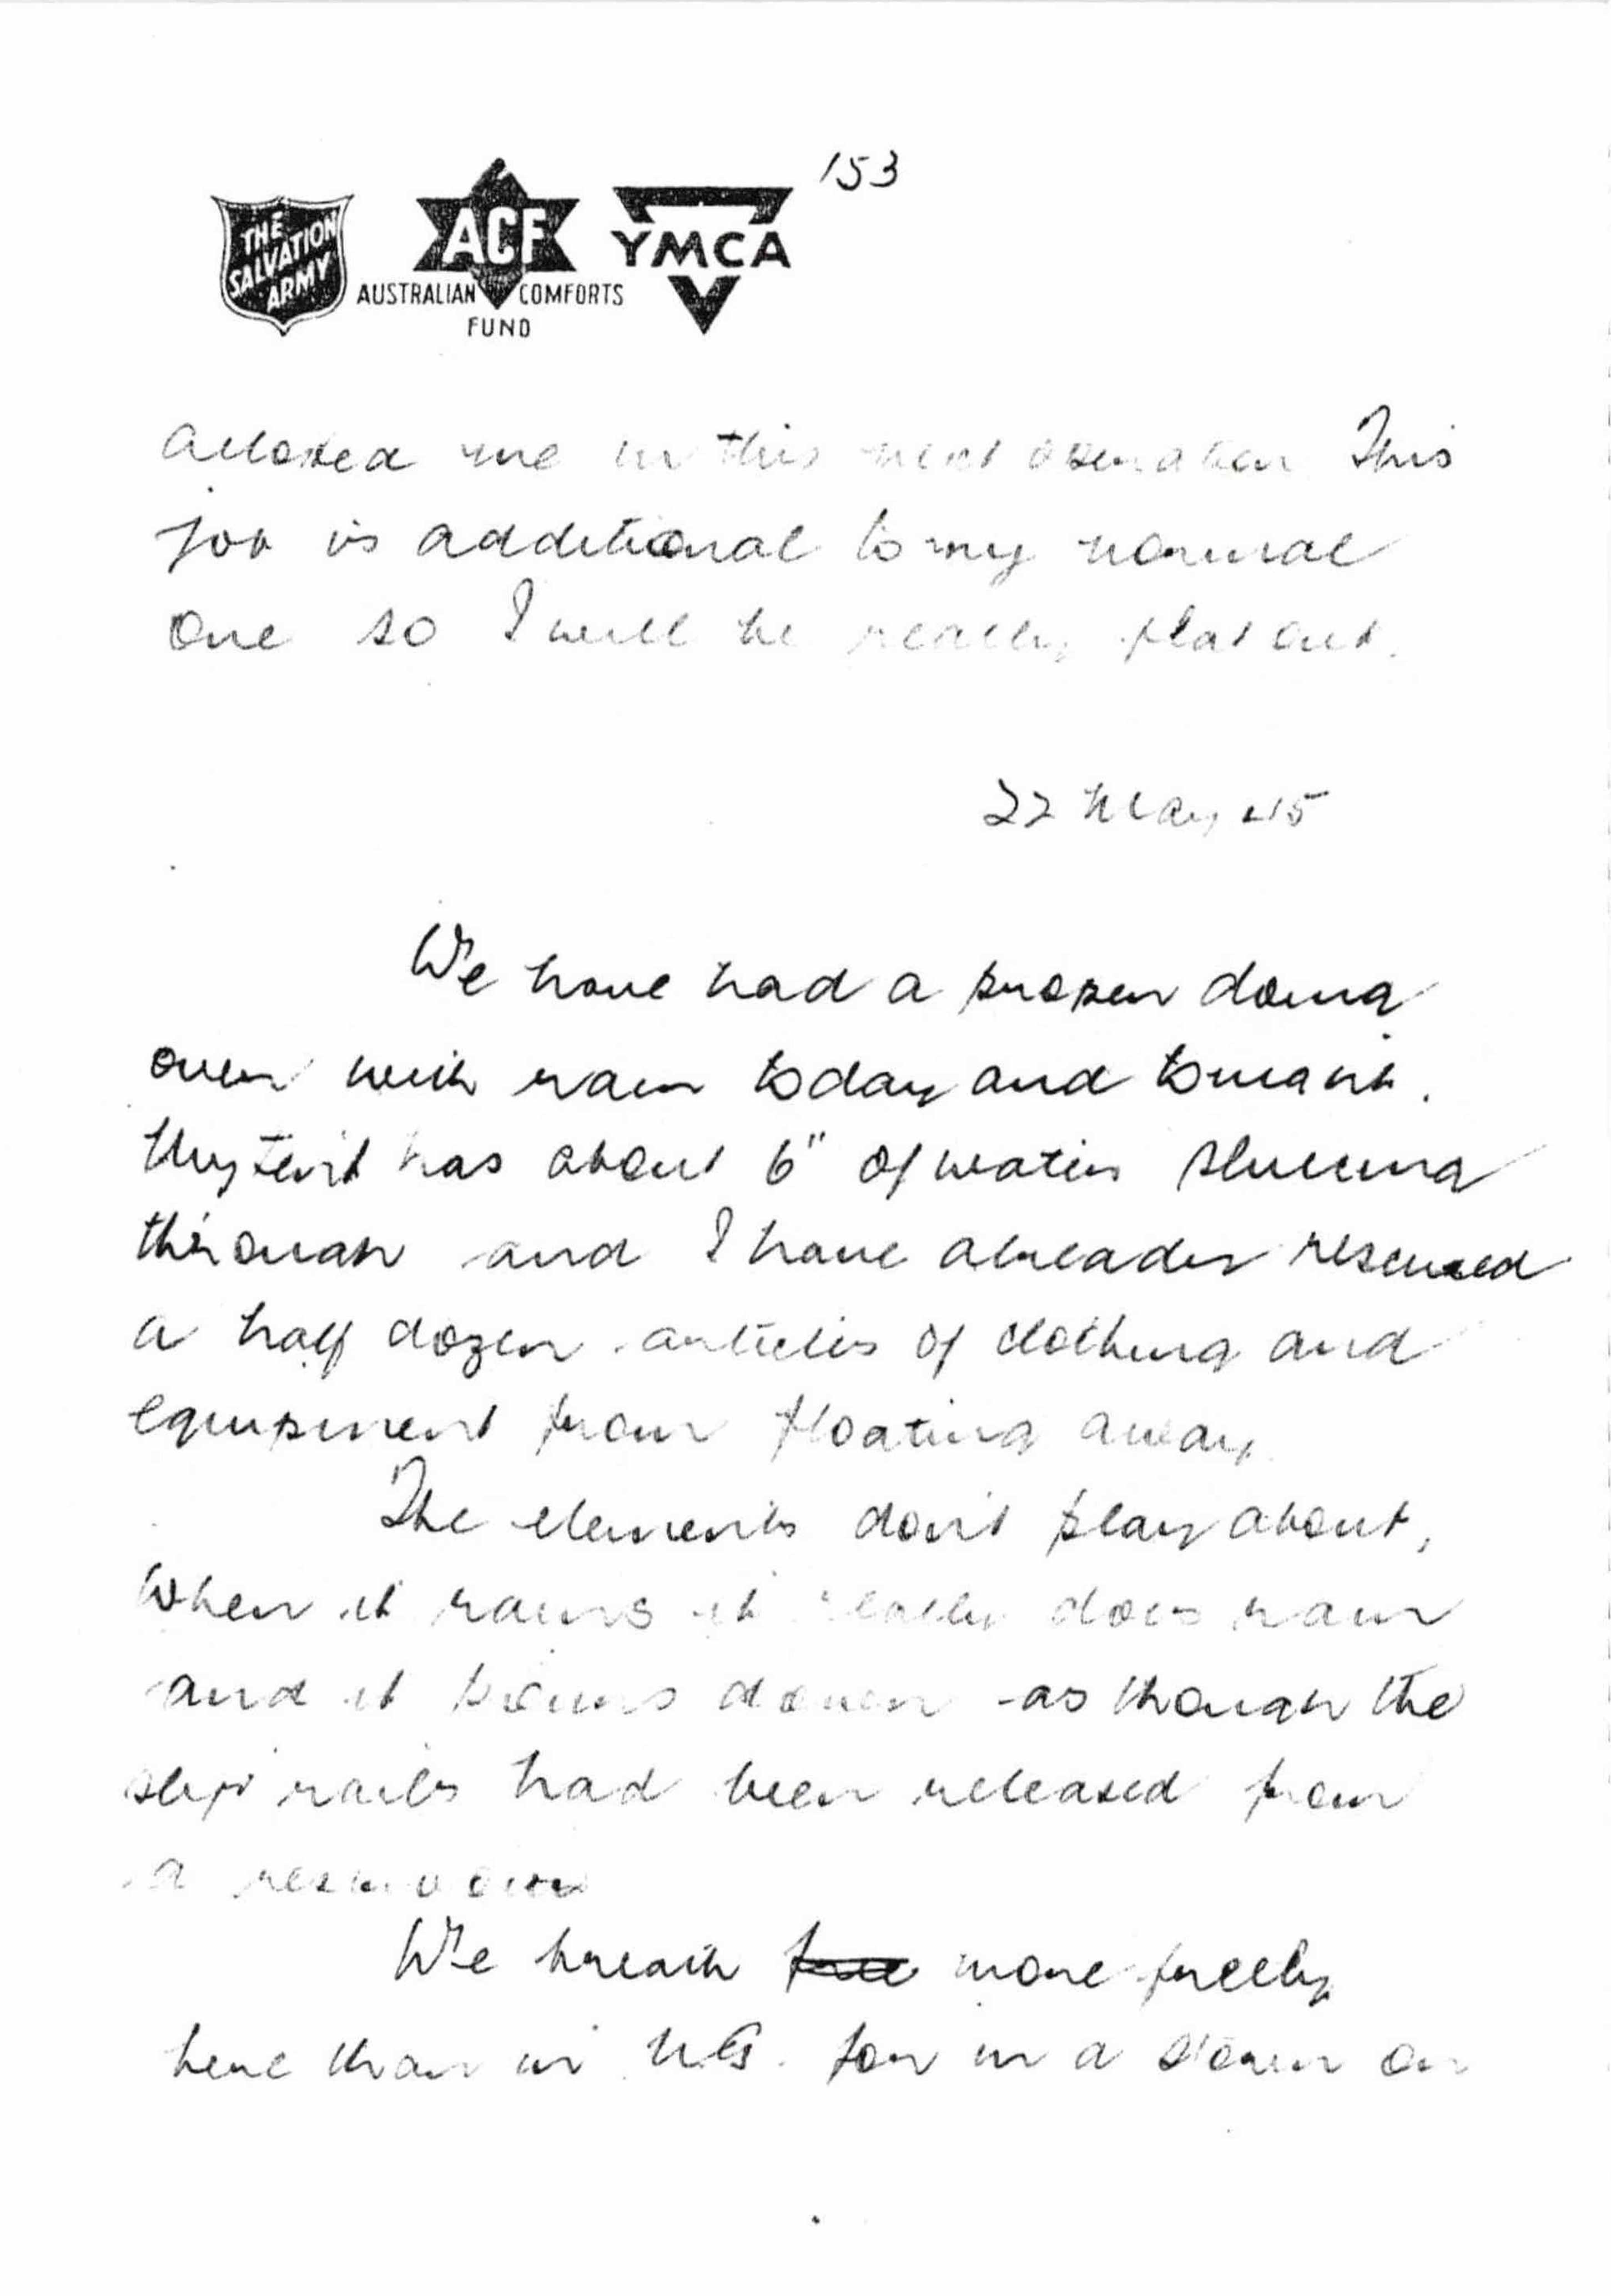 153
THE SALVATION ARMY
ACF
AUSTRALIAN COMFORTS FUND
YMCA
alloted me in this next operation This
job is additional to my normal
one so I will be really flat out.
22 May 45
We have had a proper doing
over with rain today and tonight.
My tent has about 6" of water sluicing
through and I have already rescued
a half dozen articles of clothing and
equipment from floating away
The elements don't play about,
When it rains it really does rain
and it pours down as though the
slip rails had been released from
a reservoir
We breath free more freely
here than in N.G. for in a storm or